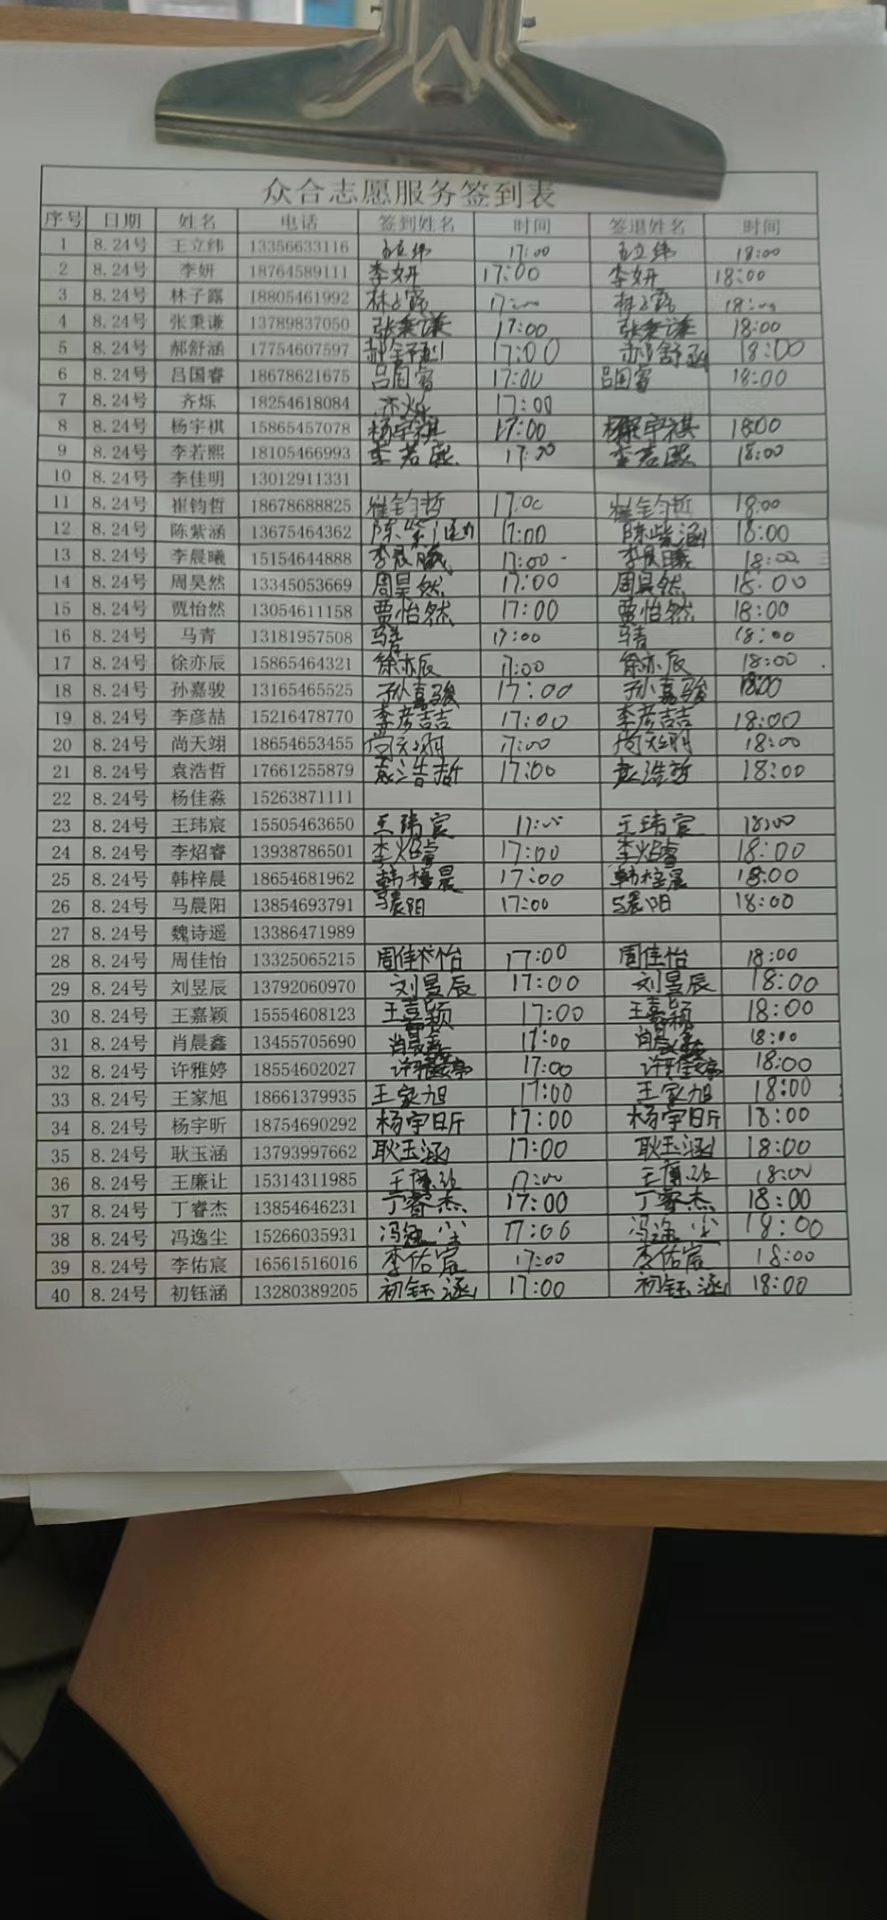 众合志愿服务签到表
序号 日期 姓名 电话 签到姓名 时间 签退姓名 时间
1 8.24号 王立纬 13356633116 王立纬 17:00 王立纬 18:00
2 8.24号 李妍 18764589111 李妍 17:00 李妍 18:00
3 8.24号 林子露 18805461992 林子露 17:00 林子露 18:00
4 8.24号 张秉谦 13789837050 张秉谦 17:00 张秉谦 18:00
5 8.24号 郝舒涵 17754607597 郝舒涵 17:00 郝舒涵 18:00
6 8.24号 吕国睿 18678621675 吕国睿 17:00 吕国睿 18:00
7 8.24号 齐烁 18254618084 齐烁 17:00
8 8.24号 杨宇祺 15865457078 杨宇祺 17:00 杨宇祺 1800
9 8.24号 李若熙 18105466993 李若熙 17:00 李若熙 18:00
10 8.24号 李佳明 13012911331
11 8.24号 崔钧哲 18678688825 崔钧哲 17:00 崔钧哲 18:00
12 8.24号 陈紫涵 13675464362 陈紫涵 17:00 陈紫涵 18:00
13 8.24号 李晨曦 15154644888 李晨曦 17:00 李晨曦 18:00
14 8.24号 周昊然 13345053669 周昊然 17:00 周昊然 18:00
15 8.24号 贾怡然 13054611158 贾怡然 17:00 贾怡然 18:00
16 8.24号 马青 13181957508 马青 17:00 马青 18:00
17 8.24号 徐亦辰 15865464321 徐亦辰 17:00 徐亦辰 18:00
18 8.24号 孙嘉骏 13165465525 孙嘉骏 17:00 孙嘉骏 18:00
19 8.24号 李彦喆 15216478770 李彦喆 17:00 李彦喆 18:00
20 8.24号 尚天翊 18654653455 尚天翊 17:00 尚天翊 18:00
21 8.24号 袁浩哲 17661255879 袁浩哲 17:00 袁浩哲 18:00
22 8.24号 杨佳淼 15263871111
23 8.24号 王玮宸 15505463650 王玮宸 17:00 王玮宸 18:00
24 8.24号 李炤睿 13938786501 李炤睿 17:00 李炤睿 18:00
25 8.24号 韩梓晨 18654681962 韩梓晨 17:00 韩梓晨 18:00
26 8.24号 马晨阳 13854693791 马晨阳 17:00 马晨阳 18:00
27 8.24号 魏诗遥 13386471989
28 8.24号 周佳怡 13325065215 周佳怡 17:00 周佳怡 18:00
29 8.24号 刘昱辰 13792060970 刘昱辰 17:00 刘昱辰 18:00
30 8.24号 王嘉颖 15554608123 王嘉颖 17:00 王嘉颖 18:00
31 8.24号 肖晨鑫 13455705690 肖晨鑫 17:00 肖晨鑫 18:00
32 8.24号 许雅婷 18554602027 许雅婷 17:00 许雅婷 18:00
33 8.24号 王家旭 18661379935 王家旭 17:00 王家旭 18:00
34 8.24号 杨宇昕 18754690292 杨宇昕 17:00 杨宇昕 18:00
35 8.24号 耿玉涵 13793997662 耿玉涵 17:00 耿玉涵 18:00
36 8.24号 王廉让 15314311985 王廉让 17:00 王廉让 18:00
37 8.24号 丁睿杰 13854646231 丁睿杰 17:00 丁睿杰 18:00
38 8.24号 冯逸尘 15266035931 冯逸尘 17:00 冯逸尘 18:00
39 8.24号 李佑宸 16561516016 李佑宸 17:00 李佑宸 18:00
40 8.24号 初钰涵 13280389205 初钰涵 17:00 初钰涵 18:00